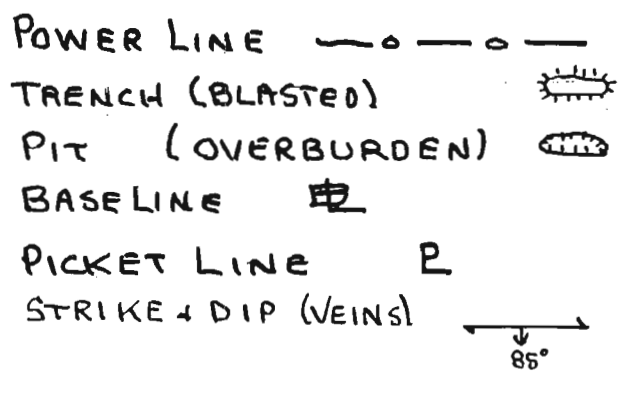 POWER LINE
TRENCH (BLASTED)
PIT (OVERBURDEN)
BASELINE
PICKET LINE PL
STRIKE & DIP (VEINS)
85°